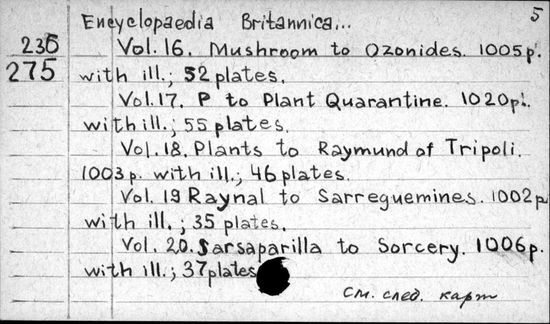 5
Encyclopaedia Britannica...
236 Vol. 16. Mushroom to Ozonides. 1005p.
275 with ill.; 52 plates.
Vol. 17. P to Plant Quarantine. 1020p.
with ill.; 55 plates.
Vol. 18. Plants to Raymund of Tripoli.
1003 p. with ill.; 46 plates.
Vol. 19 Raynal to Sarreguemines. 1002p
with ill. ; 35 plates.
Vol. 20. Sarsaparilla to Sorcery. 1006p.
with ill.; 37 plates
См. след. карт